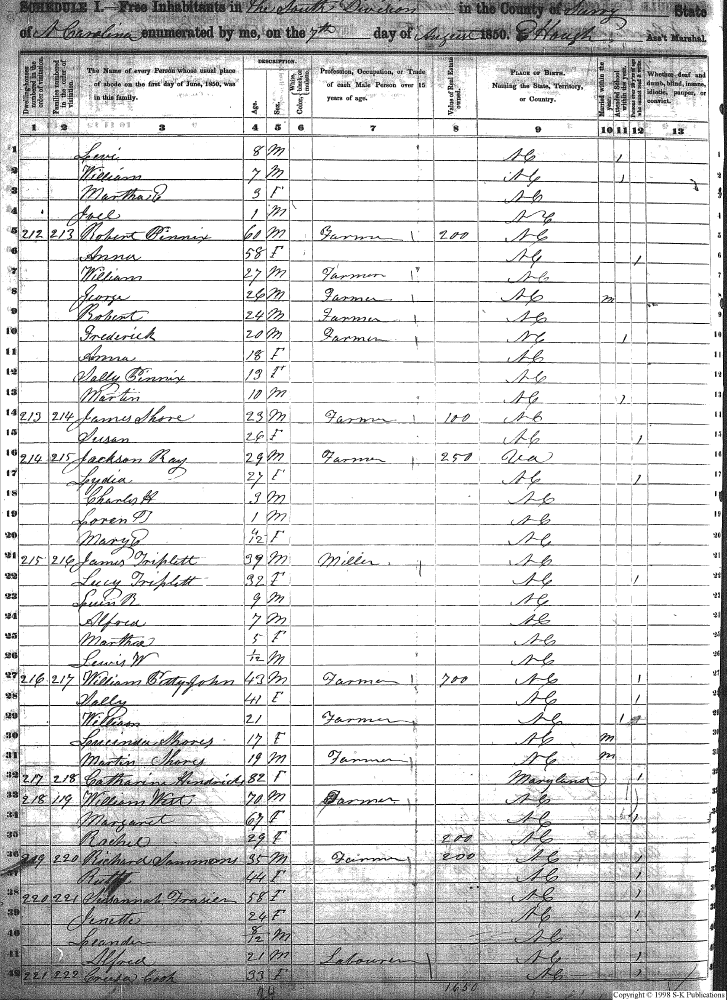 SCHEDULE I.—Free Inhabitants in The South Division in the County of Surry State
of N Carolina enumerated by me, on the 7th day of August 1850. Ass't Marshal.
DESCRIPTION.
Dwelling-houses numbered in the order of visitation.
Families numbered in the order of visitation.
The Name of every Person whose usual place of abode on the first day of June, 1850, was in this family.
Age.
Sex.
White, black, or mulatto. Color,
Profession, Occupation, or Trade of each Male Person over 15 years of age.
Value of Real Estate owned.
PLACE OF BIRTH. Naming the State, Territory, or Country.
Married within the year.
Attended School within the year.
Persons over 20 y'rs of age who cannot read & write.
Whether deaf and dumb, blind, insane, idiotic, pauper, or convict.
1 2 3 4 5 6 7 8 9 10 11 12 13
1 Levi 8 M NC 1
2 William 7 M NC 1
3 Martha E 3 F NC
4 Joel 1 M NC
5 212 213 Robert Pinnix 60 M Farmer 200 NC
6 Anna 58 F NC 1
7 William 27 M Farmer NC
8 George 26 M Farmer NC M
9 Robert 24 M Farmer NC
10 Frederick 20 M Farmer NC 1
11 Anna 18 F NC
12 Sally Pinnix 13 F NC
13 Martin 10 M NC 1
14 213 214 James Shore 23 M Farmer 100 NC
15 Susan 26 F NC 1
16 214 215 Jackson Ray 29 M Farmer 250 Va
17 Lydia 27 F NC 1
18 Charles H 3 M NC
19 Loren 1 M NC
20 Mary E 4/12 F NC
21 215 216 James Triplett 39 M Miller NC
22 Lucy Triplett 32 F NC 1
23 R 9 M NC
24 Alfred 7 M NC
25 Martha 5 F NC
26 Lewis W 1/12 M NC
27 216 217 William Pettyjohn 43 M Farmer 700 NC 1
28 Sally 41 F NC 1
29 William 21 Farmer NC 1
30 Shores 17 F NC M
31 Martin Shores 19 M Farmer NC M
32 217 218 Catharine Hendricks 82 F Maryland 1
33 218 119 William 70 M Farmer NC
34 Margaret 67 F NC 1
35 Rachel 29 F 200 NC
36 219 220 Richard Sammons 35 M Farmer 200 NC 1
37 44 F NC 1
38 220 221 Susannah Frasier 58 F NC 1
39 Jenette 24 F NC 1
40 Leander 8/12 M NC
41 Alfred 21 M Labourer NC 1
42 221 222 Cook 33 F NC 1
1650
Copyright © 1998 S-K Publications